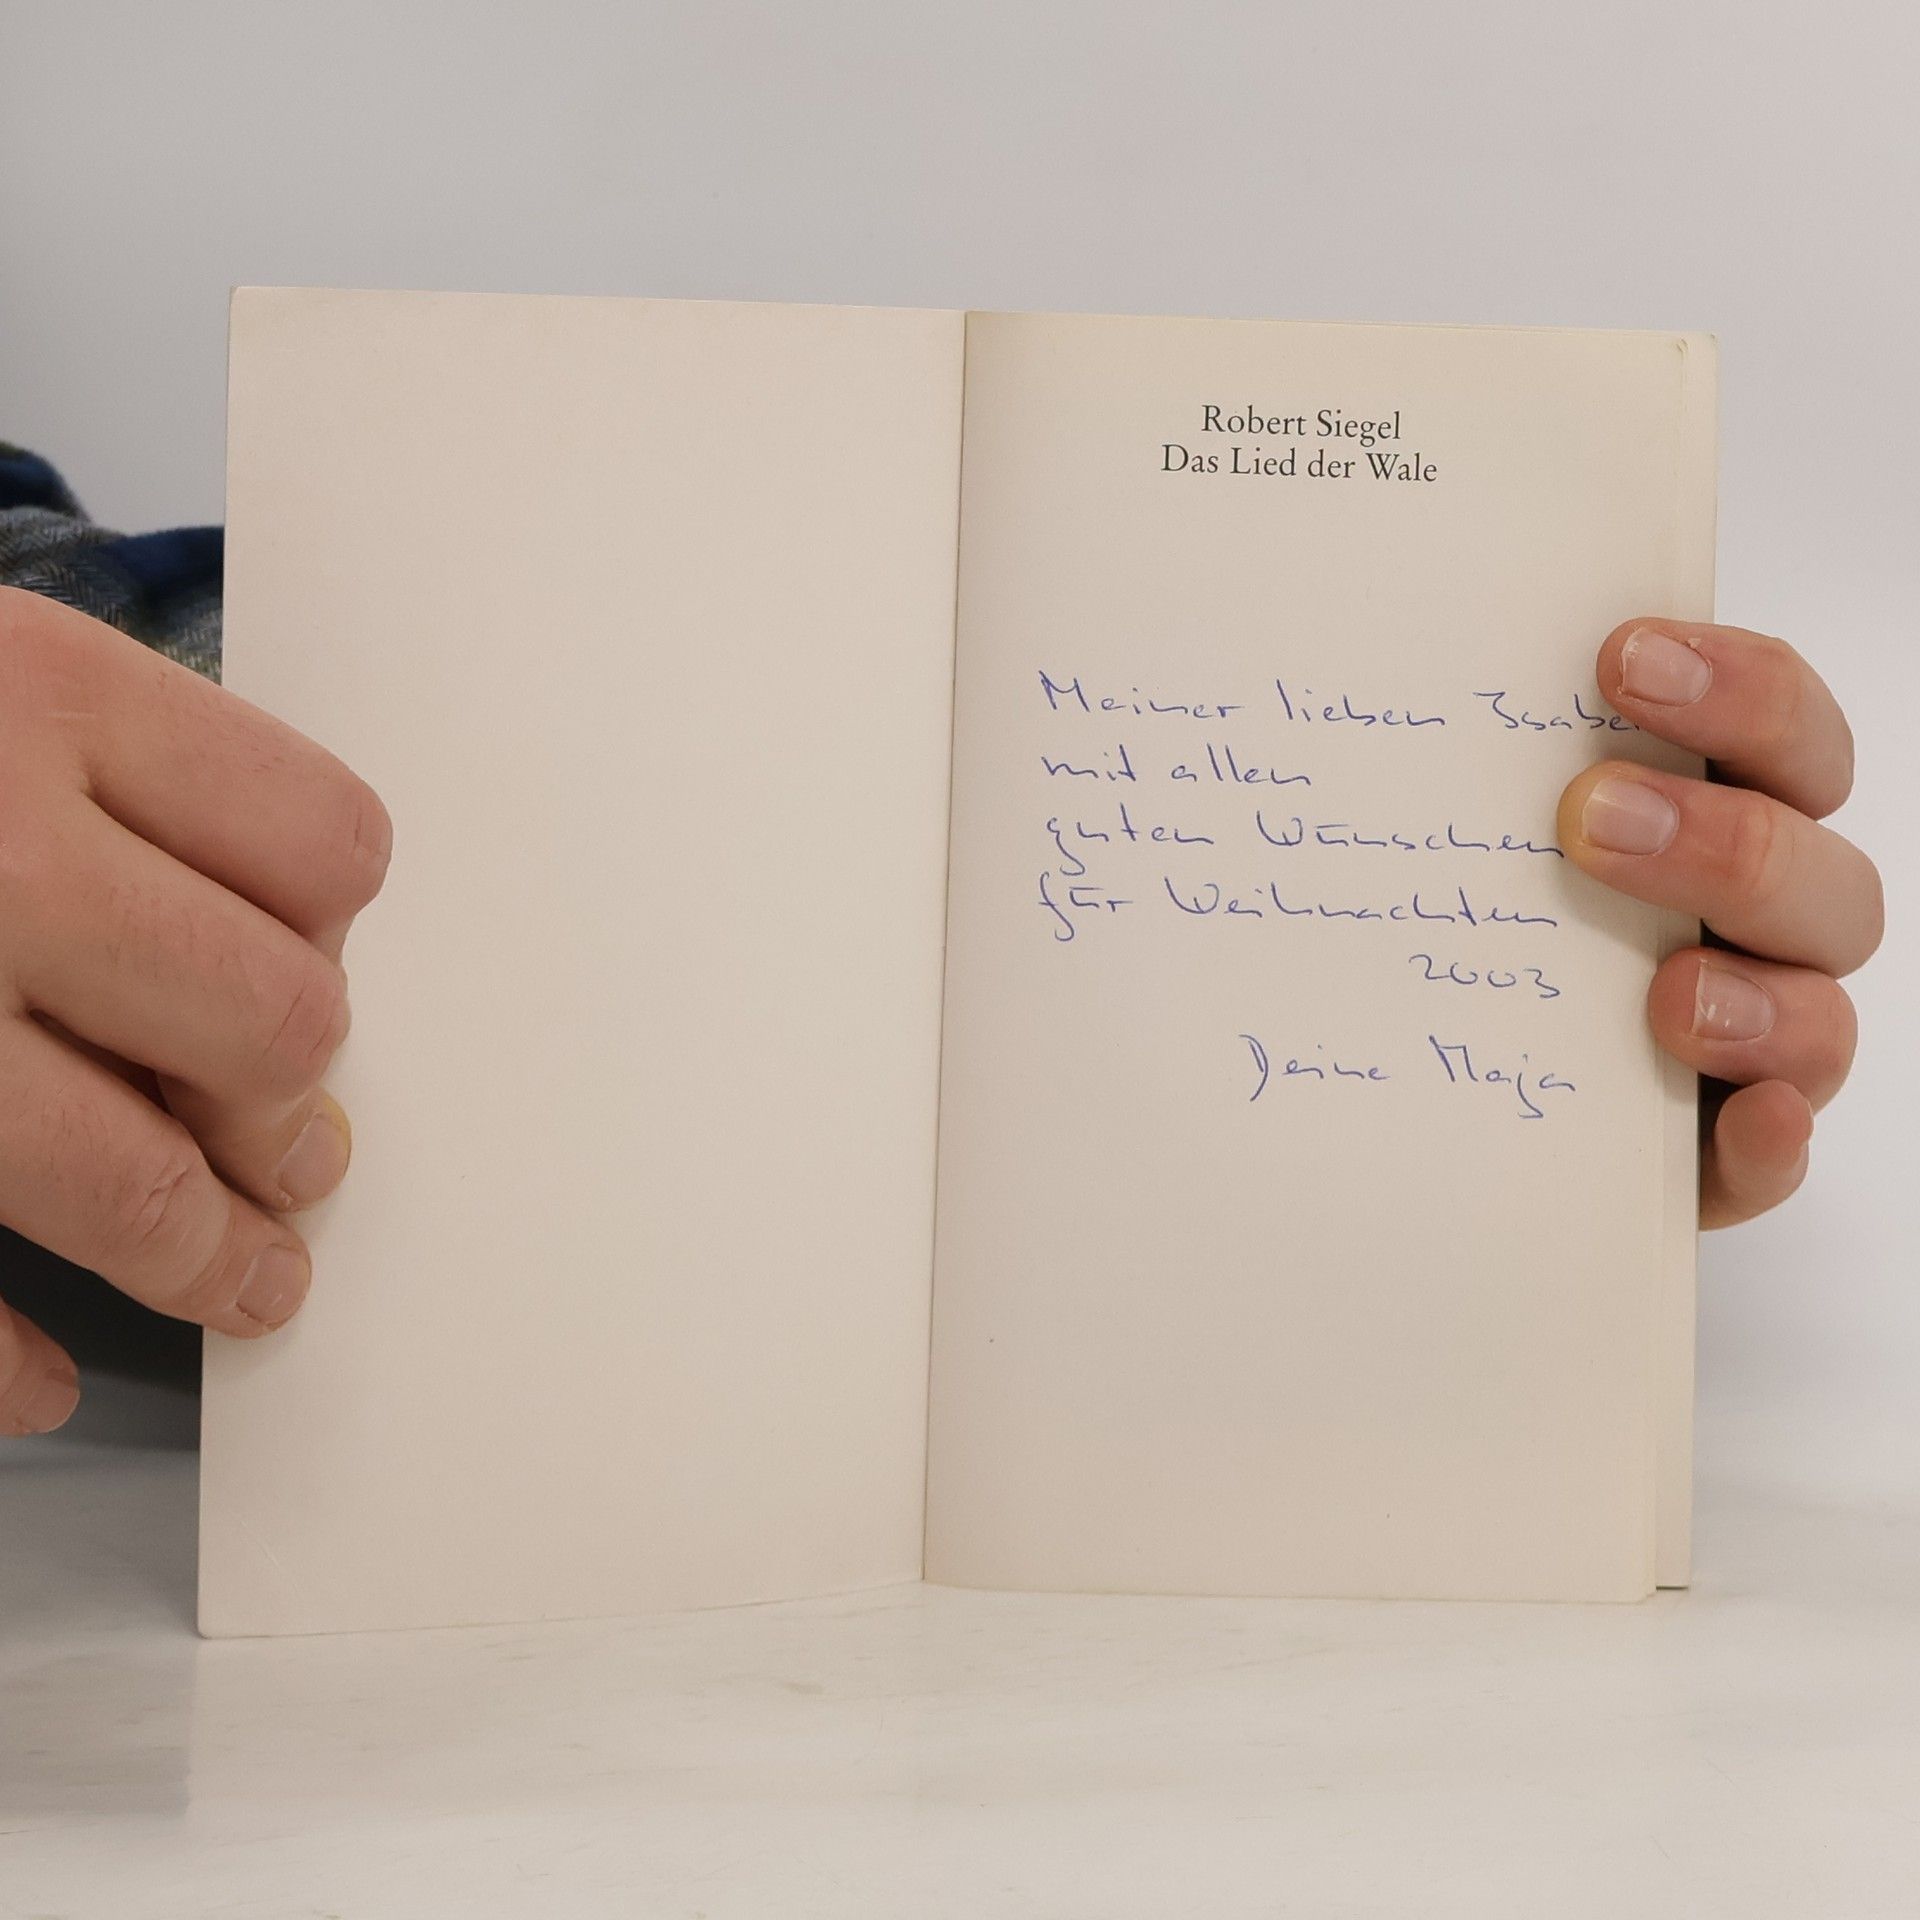 Robert Siegel
Das Lied der Wale
Meiner lieben
mit allen
guten Wünschen
für Weihnachten
2003
Deine Maja